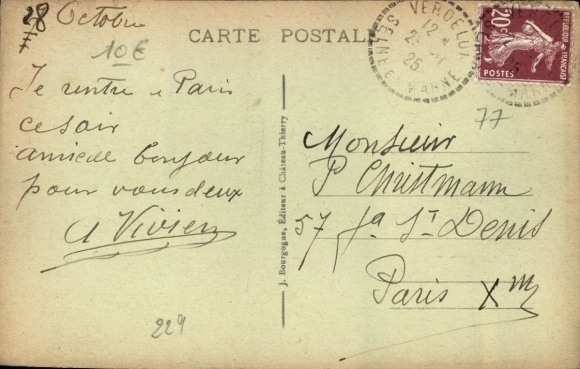 28 Octobre
10€
CARTE POSTALE
Je rentre à Paris
ce soir
amical bonjour
pour vous deux
A Vivien
229
J. Bourgogne, Éditeur à Château-Thierry
VERDELOT
SEINE-ET-MARNE
12
25
20c
REPUBLIQUE FRANÇAISE
POSTES
77
Monsieur
P Christmann
57 fg St Denis
Paris X